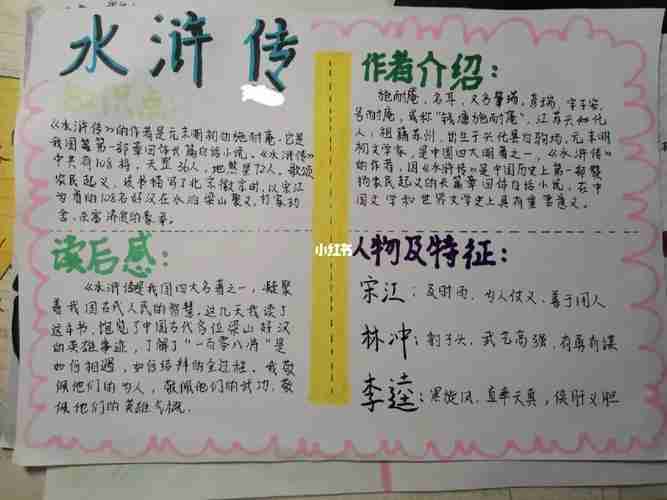 水浒传
知识点:
《水浒传》的作者是元末明初的施耐庵。它是
我国第一部章回体长篇白话小说。《水浒传》
中共有108将,天罡36人,地煞星72人。歌颂
农民起义。该书描写了北宋徽宗时,以宋江
为首的108名好汉在水泊梁山聚义,打家劫
舍,杀富济贫的豪举。
作者介绍:
施耐庵,名耳,又名肇瑞,彦瑞,字子安,
号耐庵,或称"钱塘施耐庵",江苏兴化
人,祖籍苏州,出生于兴化县白驹场,元末明
初文学家,是中国四大明著之一,《水浒传》
的作者,因《水浒传》是中国历史上第一部
的农民起义的长篇章回体白话小说,在中
国文学和世界文学史上具有重要意义。
读后感:
《水浒传》是我国四大名著之一,凝聚
着我国古代人民的智慧。这几天我读了
这本书,饱览了中国古代多位梁山好汉
的英雄事迹,了解了"一百零八将"是
如何相遇,如何结拜的全过程。我敬
佩他们的为人,敬佩他们的武功,敬
佩他们的英雄气概。
小红书
人物及特征:
宋江:及时雨、为人仗义、善于用人
林冲:豹子头、武艺高强、有勇有谋
李逵:黑旋风、直率天真,侠肝义胆